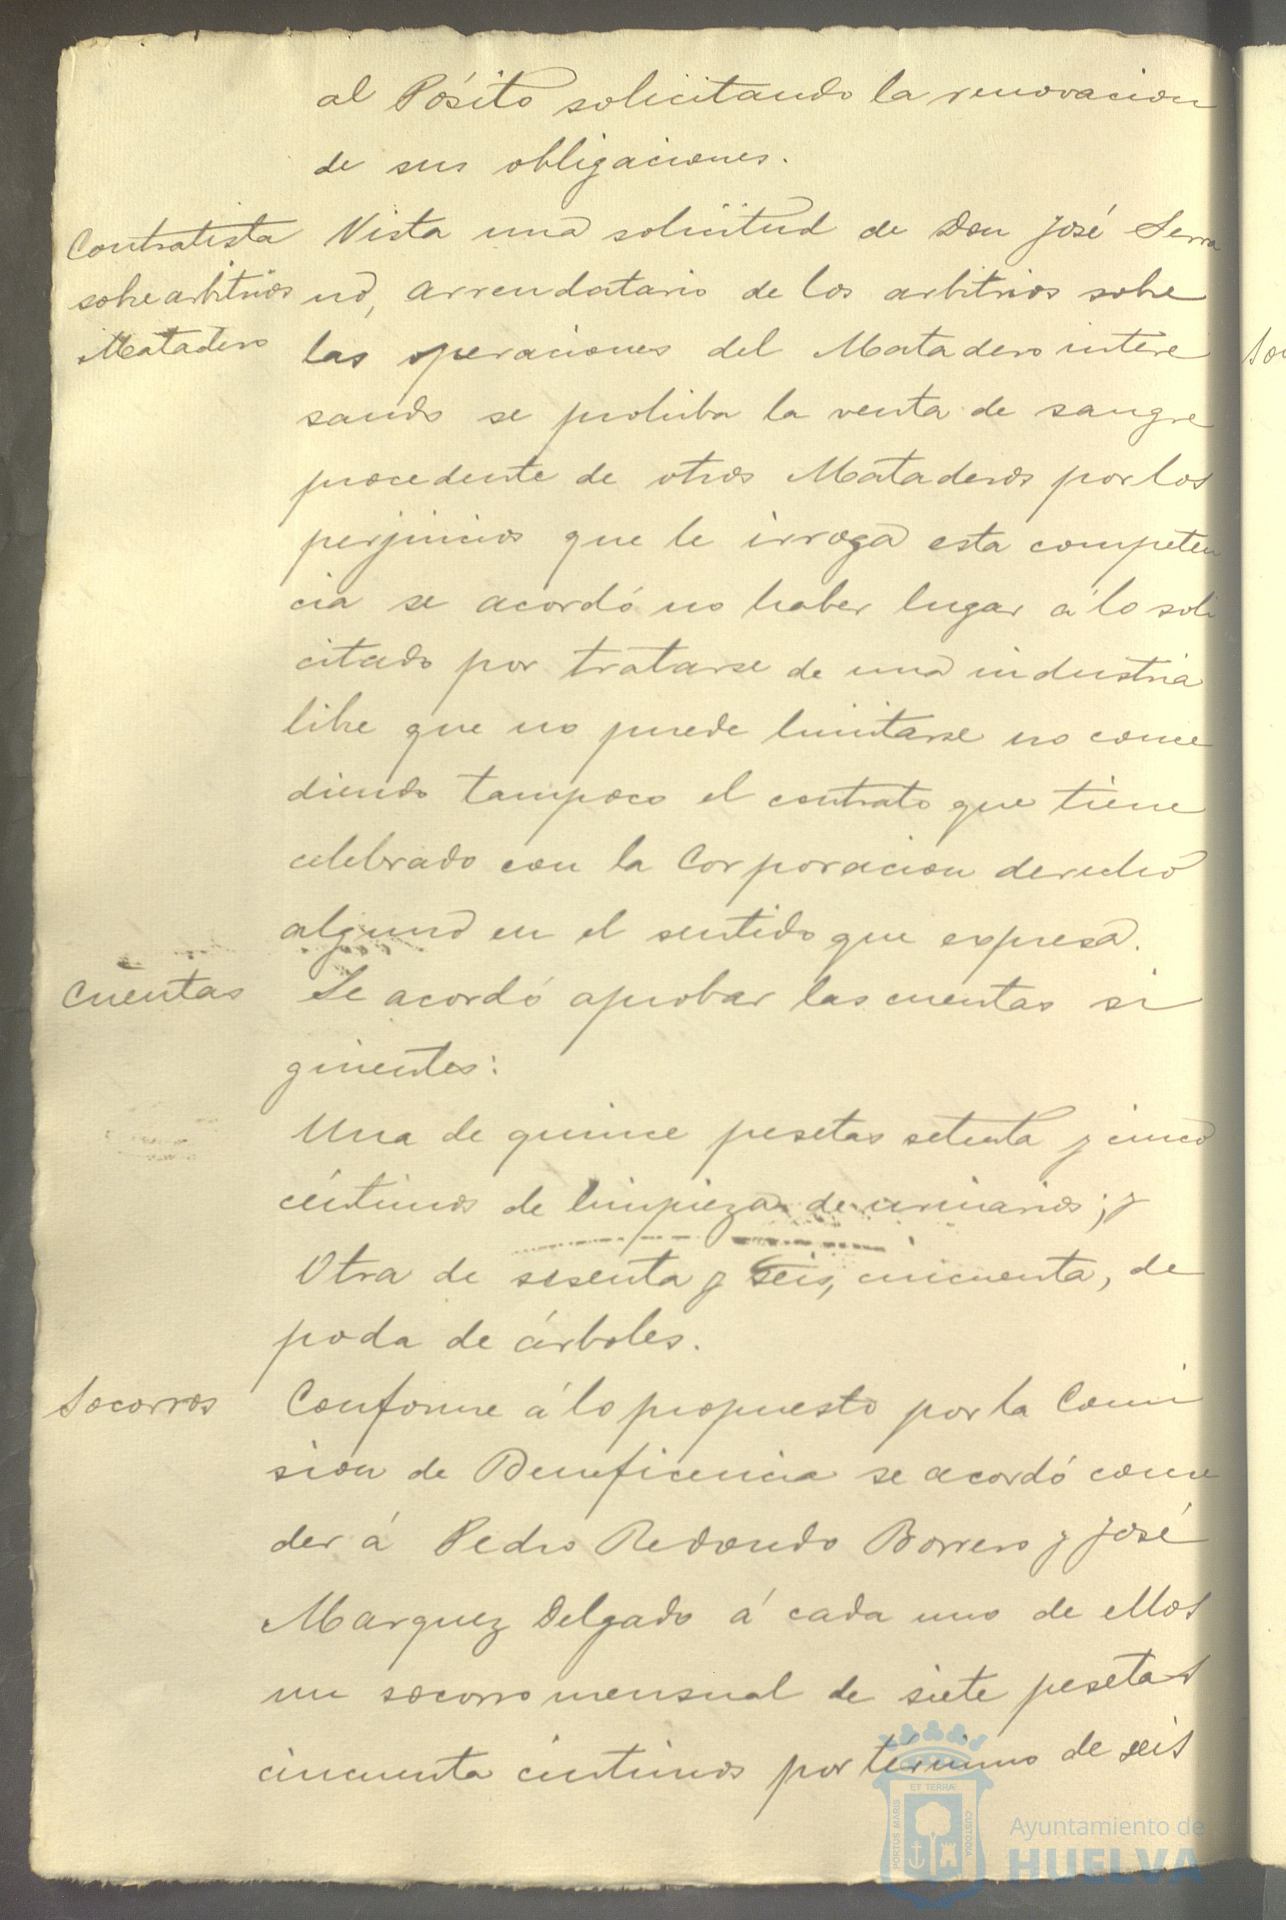 al Pósito solicitando la renovacion
de sus obligaciones.
Contratista
sobre arbitrios
Matadero
Vista una solicitud de Don José Serra
no, arrendatario de los arbitrios sobre
las operaciones del Matadero intere
sando se prohiba la venta de sangre
procedente de otros Mataderos por los
perjuicios que le irroga esta competen
cia se acordó no haber lugar á lo soli
citado por tratarse de una industria
libre que no puede limitarse no conce
diendo tampoco el contrato que tiene
celebrado con la Corporacion derecho
alguno en el sentido que expresa.
Cuentas
Se acordó aprobar las cuentas si
guientes:
Una de quince pesetas setenta y cinco
céntimos de limpieza de urinarios; y
Otra de sesenta y seis, cincuenta, de
poda de árboles.
Socorros
Conforme á lo propuesto por la Comi
sion de Beneficencia se acordó conce
der á Pedro Redondo Borrero y José
Marquez Delgado á cada uno de ellos
un socorro mensual de siete pesetas
cincuenta céntimos por término de seis
PORTUS MARIS
ET TERRÆ
CUSTODIA
Ayuntamiento de
HUELVA